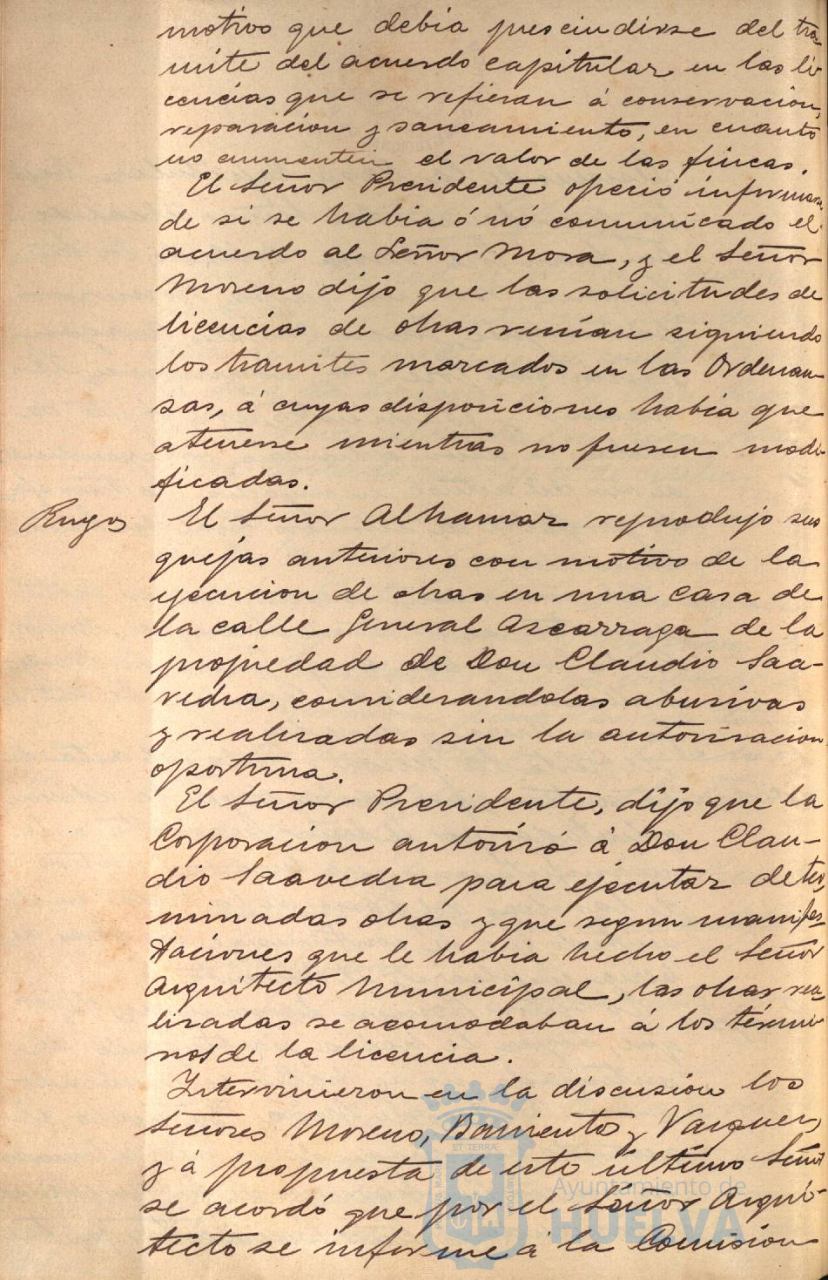 motivo que debia prescindirse del tra-
mite del acuerdo capitular en las li-
cencias que se refieran á conservacion,
reparacion y saneamiento, en cuanto
no aumenten el valor de las fincas.
El Señor Presidente ofreció informar
de si se habia ó nó comunicado el
acuerdo al Señor Mora, y el Señor
Moreno dijo que las solicitudes de
licencias de obras venian siguiendo
los tramites marcados en las Ordenan-
sas, á cuyas disposiciones habia que
atenerse mientras no fuesen modi-
ficadas.
Ruegos
El Señor Alhamar reprodujo sus
quejas anteriores con motivo de la
ejecucion de obras en una casa de
la calle General Azcarraga de la
propiedad de Don Claudio Saa-
vedra, considerandolas abusivas
y realizadas sin la autorizacion
oportuna.
El Señor Presidente, dijo que la
Corporacion autorizó á Don Clau-
dio Saavedra para ejecutar deter-
minadas obras y que segun manifes-
taciones que le habia hecho el Señor
Arquitecto Municipal, las obras rea-
lizadas se acomodaban á los térmi-
nos de la licencia.
Intervinieron en la discusion los
Señores Moreno, Barriento y Vazquez,
y á propuesta de este último Señor
se acordó que por el Señor Arqui-
tecto se informe á la Comision
Ayuntamiento de
HUELVA